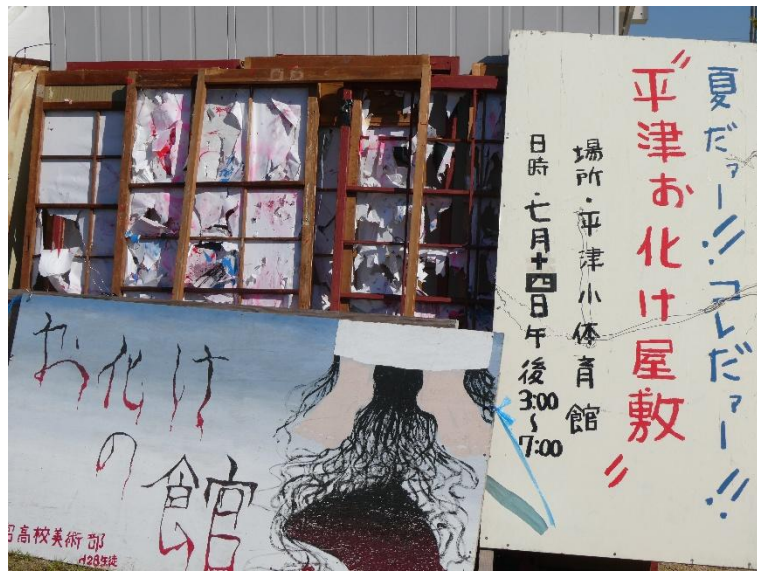 夏だァー!!コレだァー!!
"平津お化け屋敷"
場所・平津小体育館
日時・七月十四日午後3:00〜7:00
お化け
の館
高校美術部
H28生徒